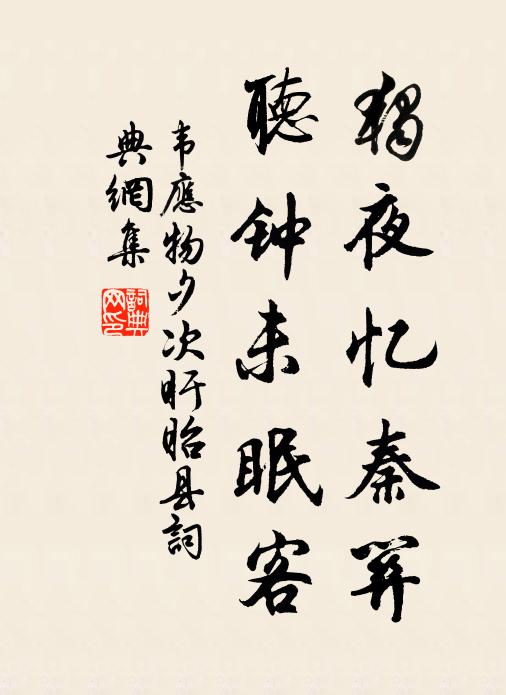 獨夜忆秦關
聽钟未眠客
韦應物夕次盱眙县詞
典網集
詞典網印